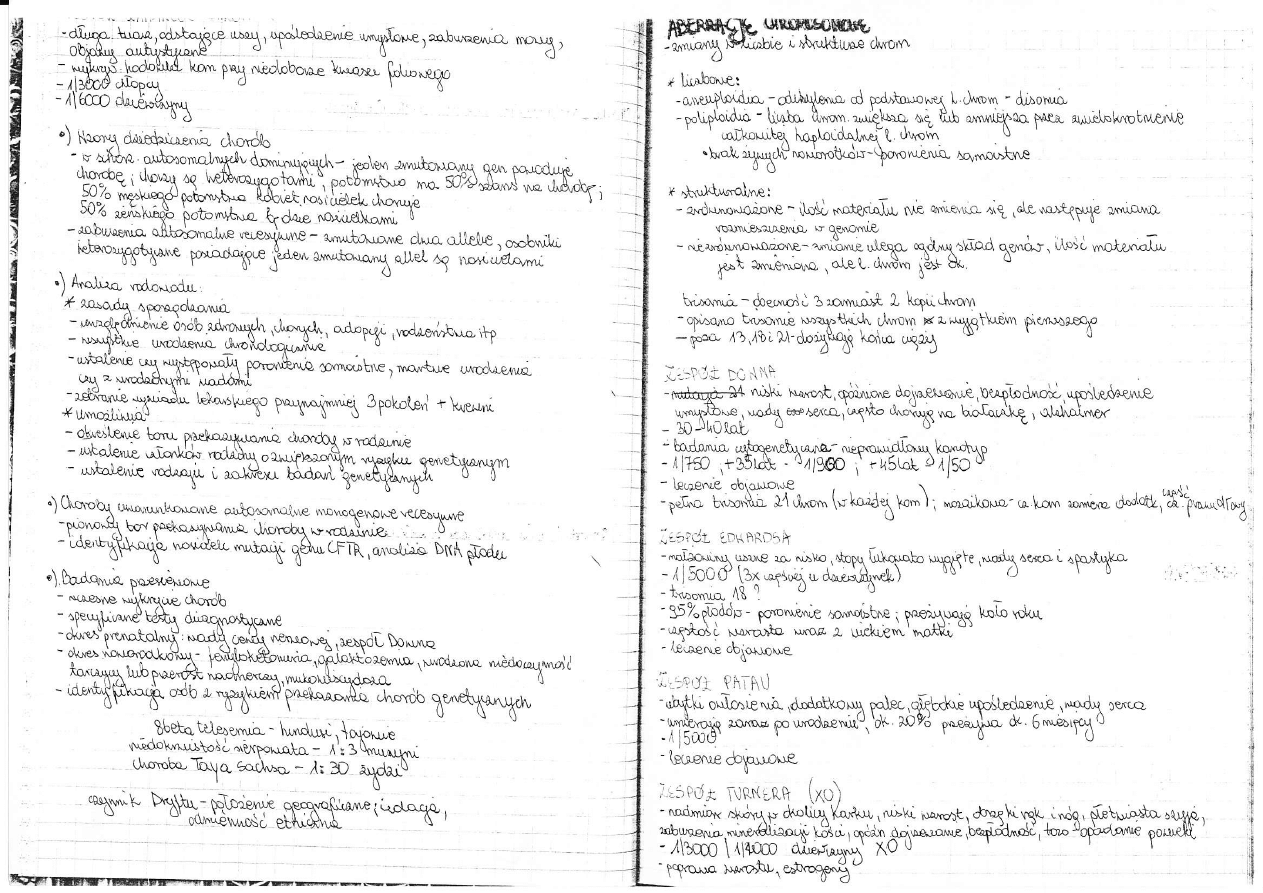 - długa twarz, odstające uszy, upośledzenie umysłowe, zaburzenia mowy,
objawy autystyczne
- wykryw. hodowla kom przy niedoborze kwasu foliowego
- 1/3000 chłopcy
- 1/6000 dziewczyny
•) Wzory dziedziczenia chorób
- w schorz. autosomalnych dominujących - jeden zmutowany gen powoduje
chorobę; chorzy są heterozygotami, potomstwo ma 50% szans na chorobę;
50% męskiego potomstwa kobiet nosicielek choruje
50% żeńskiego potomstwa będzie nosicielkami
- zaburzenia autosomalne recesywne - zmutowane dwa allele, osobniki
heterozygotyczne posiadające jeden zmutowany allel są nosicielami
•) Analiza rodowodu:
* zasady sporządzania
- uwzględnienie osób zdrowych, chorych, adopcji, rodzeństwa itp
- wszystkie urodzenia chronologicznie
- ustalenie czy występowały poronienia samoistne, martwe urodzenia
czy z urodzonymi wadami
- zebranie wywiadu lekarskiego przynajmniej 3 pokoleń + krewni
* umożliwia
- określenie toru przekazywania choroby w rodzinie
- ustalenie członków rodziny o zwiększonym ryzyku genetycznym
- ustalenie rodzaju i zakresu badań genetycznych
•) Choroby uwarunkowane autosomalne monogenowe recesywne
- pionowy tor przekazywania choroby w rodzinie
- identyfikacja nosicielek mutacji genu CFTR, analiza DNA płodu
•) Badania przesiewowe
- wczesne wykrycie chorób
- specyficzne testy diagnostyczne
- okres prenatalny: wady cewy nerwowej, zespół Downa
- okres noworodkowy - fenyloketonuria, galaktozemia, wrodzona niedoczynność
tarczycy lub przerost nadnerczy, mukowiscydoza
- identyfikacja osób z ryzykiem przekazania chorób genetycznych
βbeta telesemia - hindusi, tajowie
niedokrwistość sierpowata - 1:3 murzyni
choroba Taya Sachsa - 1:30 żydzi
czynnik Dryftu - położenie geograficzne; izolacja,
odmienność etniczna
ABERRACJE CHROMOSOMOWE
- zmiany w liczbie i strukturze chrom
* liczbowe:
- aneuploidia - odchylenia od podstawowej l. chrom - disomia
- poliploidia - liczba chrom. zwiększa się lub zmniejsza przez zwielokrotnienie
całkowitej haploidalnej l. chrom
• brak żywych noworodków - poronienia samoistne
* strukturalne:
- zrównoważone - ilość materiału nie zmienia się, ale następuje zmiana
rozmieszczenia w genomie
- niezrównoważone - zmianie ulega ogólny skład genów, ilość materiału
jest zmieniona, ale l. chrom jest ok.
trisomia - obecność 3 zamiast 2 kopii chrom
- opisano trisomie wszystkich chrom z wyjątkiem pierwszego
- poza 13, 18 i 21 - dożywają końca ciąży
ZESPÓŁ DOWNA
- mutacja 21 niski wzrost, opóźnione dojrzewanie, bezpłodność, upośledzenie
umysłowe, wady serca, często chorują na białaczkę, alzhaimer
- 30-40 lat
- badania cytogenetyczne - nieprawidłowy kariotyp
- 1/750, +35 lat - 1/960; +45 lat - 1/50
- leczenie objawowe
- pełna trisomia 21 chrom (w każdej kom); mozaikowa - cz. kom zawiera dodatk, część prawidłowy
ZESPÓŁ EDWARDSA
- małżowiny uszne za nisko, stopy łukowato wygięte, wady serca i spastyka
- 1/5000 (3x częściej u dziewczynek)
- trisomia 18?
- 95% płodów - poronienie samoistne; przeżywają koło roku
- częstość wzrasta wraz z wiekiem matki
- leczenie objawowe
ZESPÓŁ PATAU
- ubytki owłosienia, dodatkowy palec, głębokie upośledzenie, wady serca
- umierają zaraz po urodzeniu, ok. 20% przeżywa ok. 6 miesięcy
- 1/5000
- leczenie objawowe
ZESPÓŁ TURNERA (XO)
- nadmiar skóry w okolicy karku, niski wzrost, obrzęki rąk i nóg, płetwiasta szyja,
zaburzenia mineralizacji kości, opóźn dojrzewanie, bezpłodność, opadanie powiek
- 1/3000 | 1/4000 dziewczyny XO
- poprawa wzrostu, estrogeny